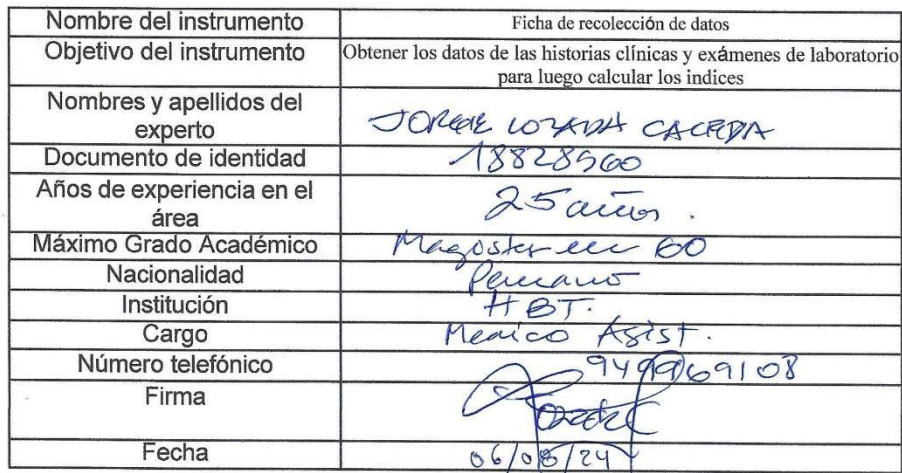 Nombre del instrumento Ficha de recolección de datos
Objetivo del instrumento Obtener los datos de las historias clínicas y exámenes de laboratorio
para luego calcular los indices
Nombres y apellidos del
experto JORGE LOZADA CACEDA
Documento de identidad 18828560
Años de experiencia en el
área 25 años.
Máximo Grado Académico Magister en
Nacionalidad Peruano
Institución HBT.
Cargo Medico Asist.
Número telefónico 949969108
Firma
Fecha 06/08/24